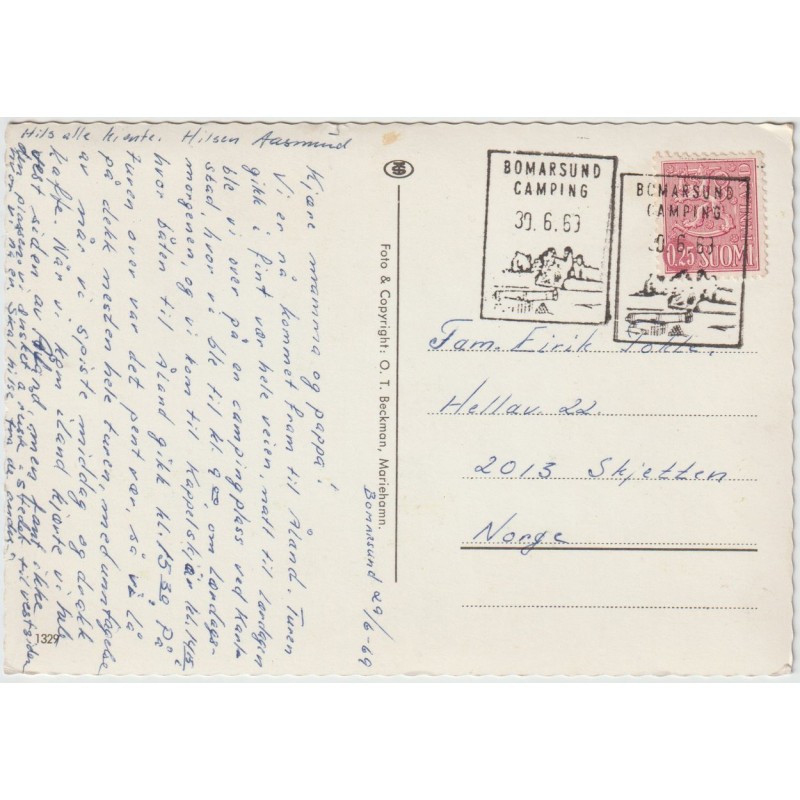 Bomarsund 29/6-69
Kjære mamma og pappa!
Vi er nå kommet fram til Åland. Turen
gikk i fint vær hele veien, natt til lørdagen
ble vi over på en campingplass ved Karl-
stad, hvor vi ble til kl. 9 00, om lørdags-
morgenen og vi kom til Kappelskjær kl. 14 15
hvor båten til Åland gikk kl. 15 30 På
turen over var det pent vær, så vi lå
på dekk nesten hele turen, med unntagelse
av når vi spiste middag og drakk
kaffe. Når vi kom iland kjørte vi til
vest siden av Åland, men fant ikke
den plassen vi ønsket å reise i stedet til vestsiden
hvor vi nå er. Skal hilse fra de andre,
Hils alle kjente. Hilsen Aasmund
1329
Foto & Copyright: O. T. Beckman, Mariehamn.
BOMARSUND
CAMPING
30.6.69
BOMARSUND
CAMPING
30.6.69
0,25 SUOMI
Fam. Eirik
Hellav. 22.
2013 Skjetten
Norge